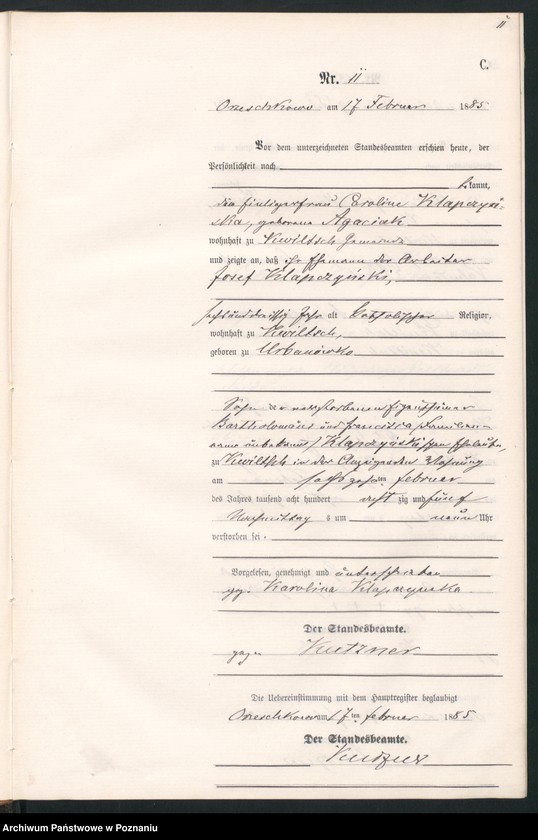 11
C.
Nr. 11
Orzeschkowo am 17 Februar 1885
Vor dem unterzeichneten Standesbeamten erschien heute, der
Persönlichkeit nach
kannt,
die Caroline Klapczyń-
ska, geborene Agaciak
wohnhaft zu Kwiltsch Gemeinde
und zeigte an, daß ihr Ehemann der Arbeiter
Josef Klapczyński,
Jahr alt katholischer Religion,
wohnhaft zu Kwiltsch,
geboren zu Urbanówko
Sohn der verstorbenen Eigenthümer
Bartholomäus und Francisca / Familien-
name unbekannt / Klapczyńskischen Eheleute,
zu Kwiltsch in der Wohnung
am sechszehnten Februar
des Jahres tausend acht hundert acht zig und fünf
Nachmittag s um neun Uhr
verstorben sei.
Vorgelesen, genehmigt und unterschrieben
gez. Karolina Klapczynska
Der Standesbeamte.
gez. Kutzner
Die Uebereinstimmung mit dem Hauptregister beglaubigt
Orzeschkowo am 17 ten Februar 1885
Der Standesbeamte.
Kutzner
Archiwum Państwowe w Poznaniu